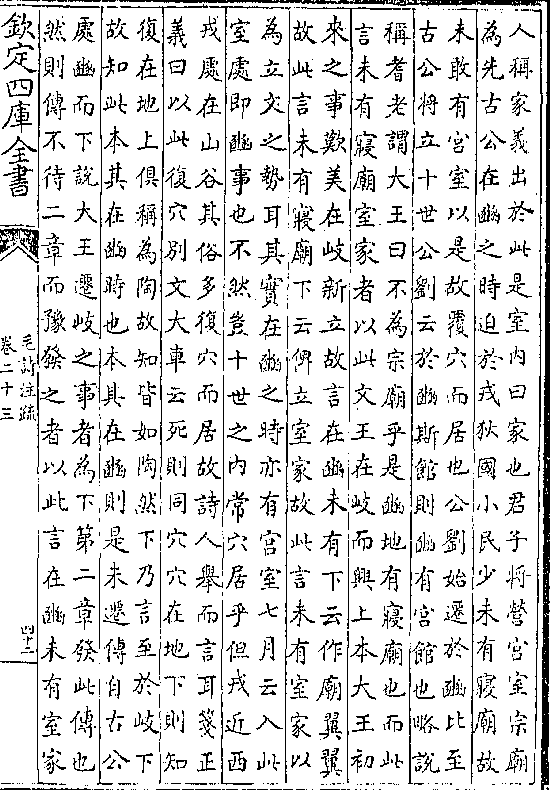 人稱家義出於此是室內曰家也君子將營宮室宗廟
為先古公在豳之時迫於戎狄國小民少未有寢廟故
未敢有宮室以是故覆穴而居也公劉始遷於豳比至
古公將立十世公劉云於豳斯館則豳有宮館也略說
稱耆老謂大王曰不為宗廟乎是豳地有寢廟也而此
言未有寢廟室家者以此文王在岐而興上本大王初
來之事歎美在岐新立故言在豳未有下云作廟翼翼
故此言未有寢廟下云俾立室家故此言未有室家以
為立文之勢耳其實在豳之時亦有宮室七月云入此
室處即豳事也不然豈十世之內常穴居乎但戎近西
戎處在山谷其俗多復穴而居故詩人舉而言耳箋正
義曰以此復穴別文大車云死則同穴穴在地下則知
復在地上俱稱為陶故知皆如陶然下乃言至於岐下
故知此本其在豳時也本其在豳則是未遷傳自古公
處豳而下說大王遷岐之事者為下第二章發此傳也
然則傳不待二章而豫發之者以此言在豳未有室家
欽定四庫全書
毛詩注疏
卷二十三
四十二